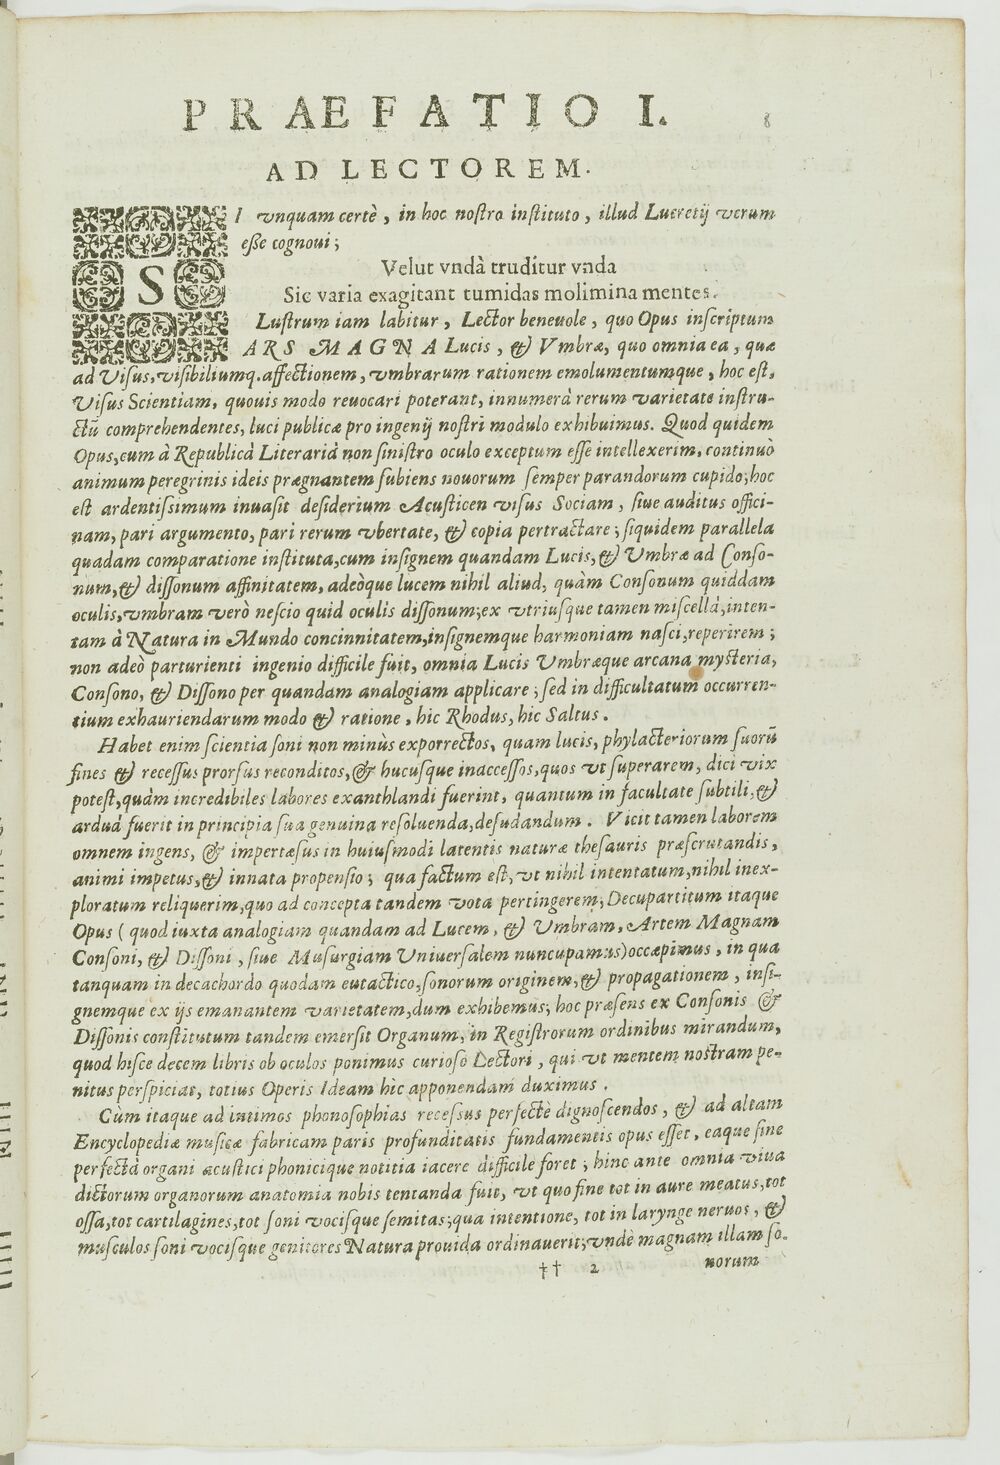 PRAEFATIO I.
8
AD LECTOREM.
SI vnquam certè, in hoc nostro instituto, illud Lucretij verum
esse cognoui;
Velut vndà truditur vnda
Sic varia exagitant tumidas molimina mentes.
Lustrum iam labitur, Lector beneuole, quo Opus inscriptum
ARS MAGNA Lucis, & Vmbræ, quo omnia ea, quæ
ad Visus, visibiliumq. affectionem, vmbrarum rationem emolumentumque, hoc est,
Visus Scientiam, quouis modo reuocari poterant, innumerà rerum varietate instru-
ctũ comprehendentes, luci publicæ pro ingenij nostri modulo exhibuimus. Quod quidem
Opus, cum à Republicà Literarià non sinistro oculo exceptum esse intellexerim, continuò
animum peregrinis ideis prægnantem subiens nouorum semper parandorum cupido, hoc
est ardentissimum inuasit desiderium Acusticen visus Sociam, siue auditus offici-
nam, pari argumento, pari rerum vbertate, & copia pertractare; siquidem parallela
quadam comparatione instituta, cum insignem quandam Lucis, & Vmbræ ad Conso-
num, & dissonum affinitatem, adeòque lucem nihil aliud, quàm Consonum quiddam
oculis, vmbram verò nescio quid oculis dissonum; ex vtriusque tamen miscellà, inten-
tam à Natura in Mundo concinnitatem, insignemque harmoniam nasci, reperirem;
non adeò parturienti ingenio difficile fuit, omnia Lucis Vmbræque arcana mysteria,
Consono, & Dissono per quandam analogiam applicare; sed in difficultatum occurren-
tium exhauriendarum modo & ratione, hic Rhodus, hic Saltus.
Habet enim scientia soni non minùs exporrectos, quam lucis, phylacteriorum suorũ
fines & recessus prorsus reconditos, & hucusque inaccessos, quos vt superarem, dici vix
potest, quàm incredibiles labores exanthlandi fuerint, quantum in facultate subtili, &
arduà fuerit in principia sua genuina resoluenda, desudandum. Vicit tamen laborem
omnem ingens, & impertæsus in huiusmodi latentis naturæ thesauris præscrutandis,
animi impetus, & innata propensio; qua factum est, vt nihil intentatum, nihil inex-
ploratum reliquerim, quo ad concepta tandem vota pertingerem; Decupartitum itaque
Opus (quod iuxta analogiam quandam ad Lucem, & Vmbram, Artem Magnam
Consoni, & Dissoni, siue Musurgiam Uniuersalem nuncupamus) occæpimus, in qua
tanquam in decachordo quodam eutactico, sonorum originem, & propagationem, insi-
gnemque ex ijs emanantem varietatem, dum exhibemus; hoc præsens ex Consonis &
Dissonis constitutum tandem emersit Organum, in Registrorum ordinibus mirandum,
quod hisce decem libris ob oculos ponimus curioso Lectori, qui vt mentem nostram pe-
nitus perspiciat, totius Operis Ideam hic apponendam duximus.
Cùm itaque ad intimos phonosophias recessus perfectè dignoscendos, & ad altam
Encyclopediæ musicæ fabricam paris profunditatis fundamentis opus esset, eaque sine
perfectà organi acustici phonicique notitia iacere difficile foret; hinc ante omnia viua
dictorum organorum anatomia nobis tentanda fuit, vt quo fine tot in aure meatus, tot
ossa, tot cartilagines, tot soni vocisque semitas; qua intentione, tot in larynge neruos, &
musculos soni vocisque genitores Natura prouida ordinauerit; vndè magnam illam so-
†† 2 norum